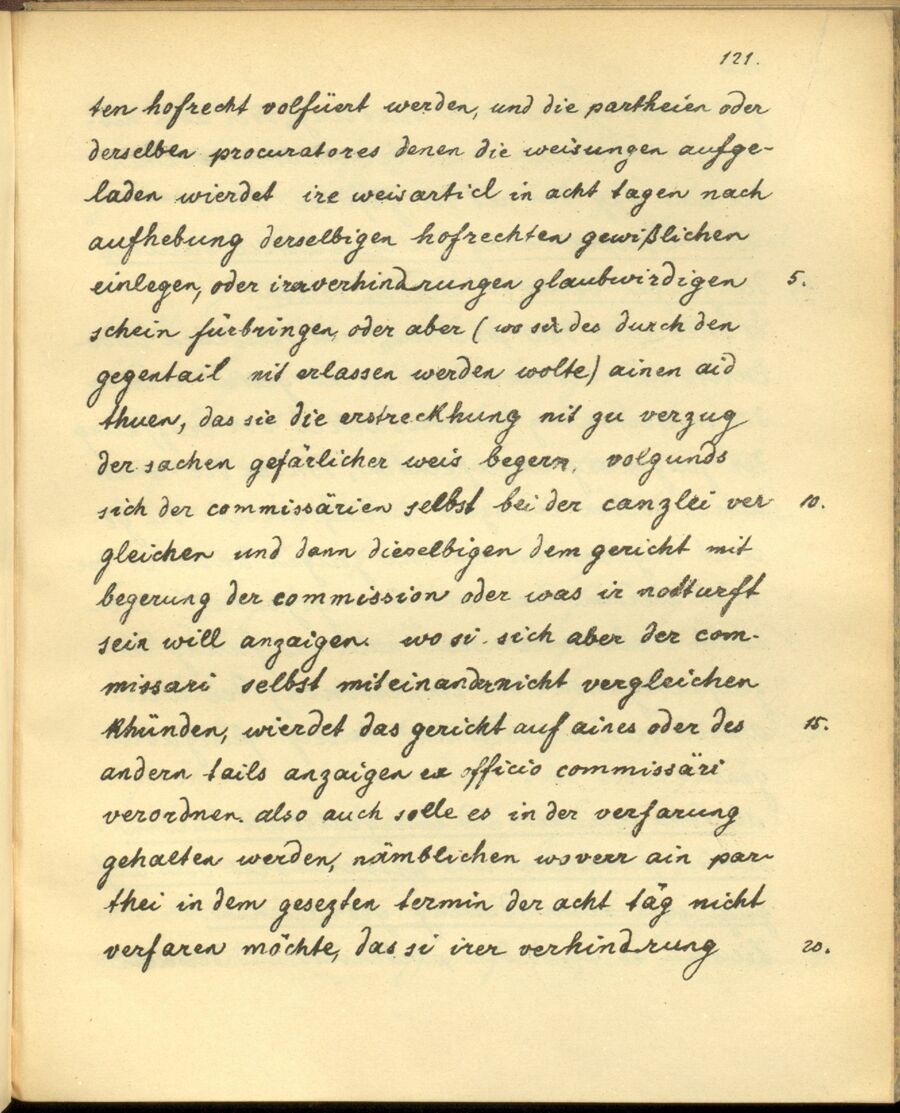 121.
ten hofrecht volfüert werden, und die partheien oder
derselben procuratores denen die weisungen aufge-
laden wierdet ire weisarticl in acht tagen nach
aufhebung derselbigen hofrechten gewißlichen
einlegen, oder irer verhindrungen glaubwirdigen 5.
schein fürbringen, oder aber (wo sie des durch den
gegentail nit erlassen werden wolte) ainen aid
thuen, das sie die erstreckhung nit zu verzug
der sachen gefärlicher weis begern, volgunds
sich der commissärien selbst bei der canzlei ver 10.
gleichen und dann dieselbigen dem gericht mit
begerung der commission oder was ir notturft
sein will anzaigen. wo si sich aber der com-
missari selbst miteinander nicht vergleichen
khünden, wierdet das gericht auf aines oder des 15.
andern tails anzaigen ex officio commissäri
verordnen. also auch solle es in der verfarung
gehalten werden, nämblichen woverr ain par-
thei in dem gesezten termin der acht täg nicht
verfaren möchte, das si irer verhindrung 20.